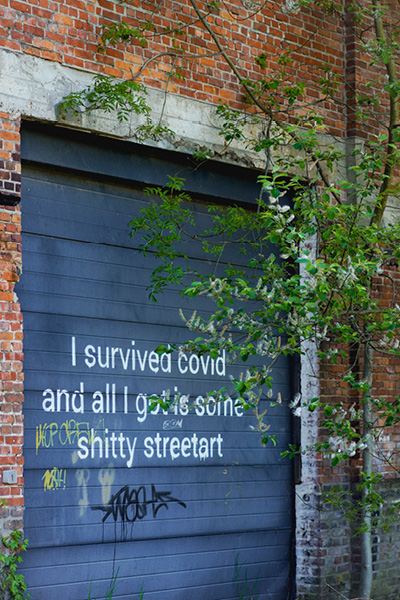 I survived covid
and all I got is some
shitty streetart